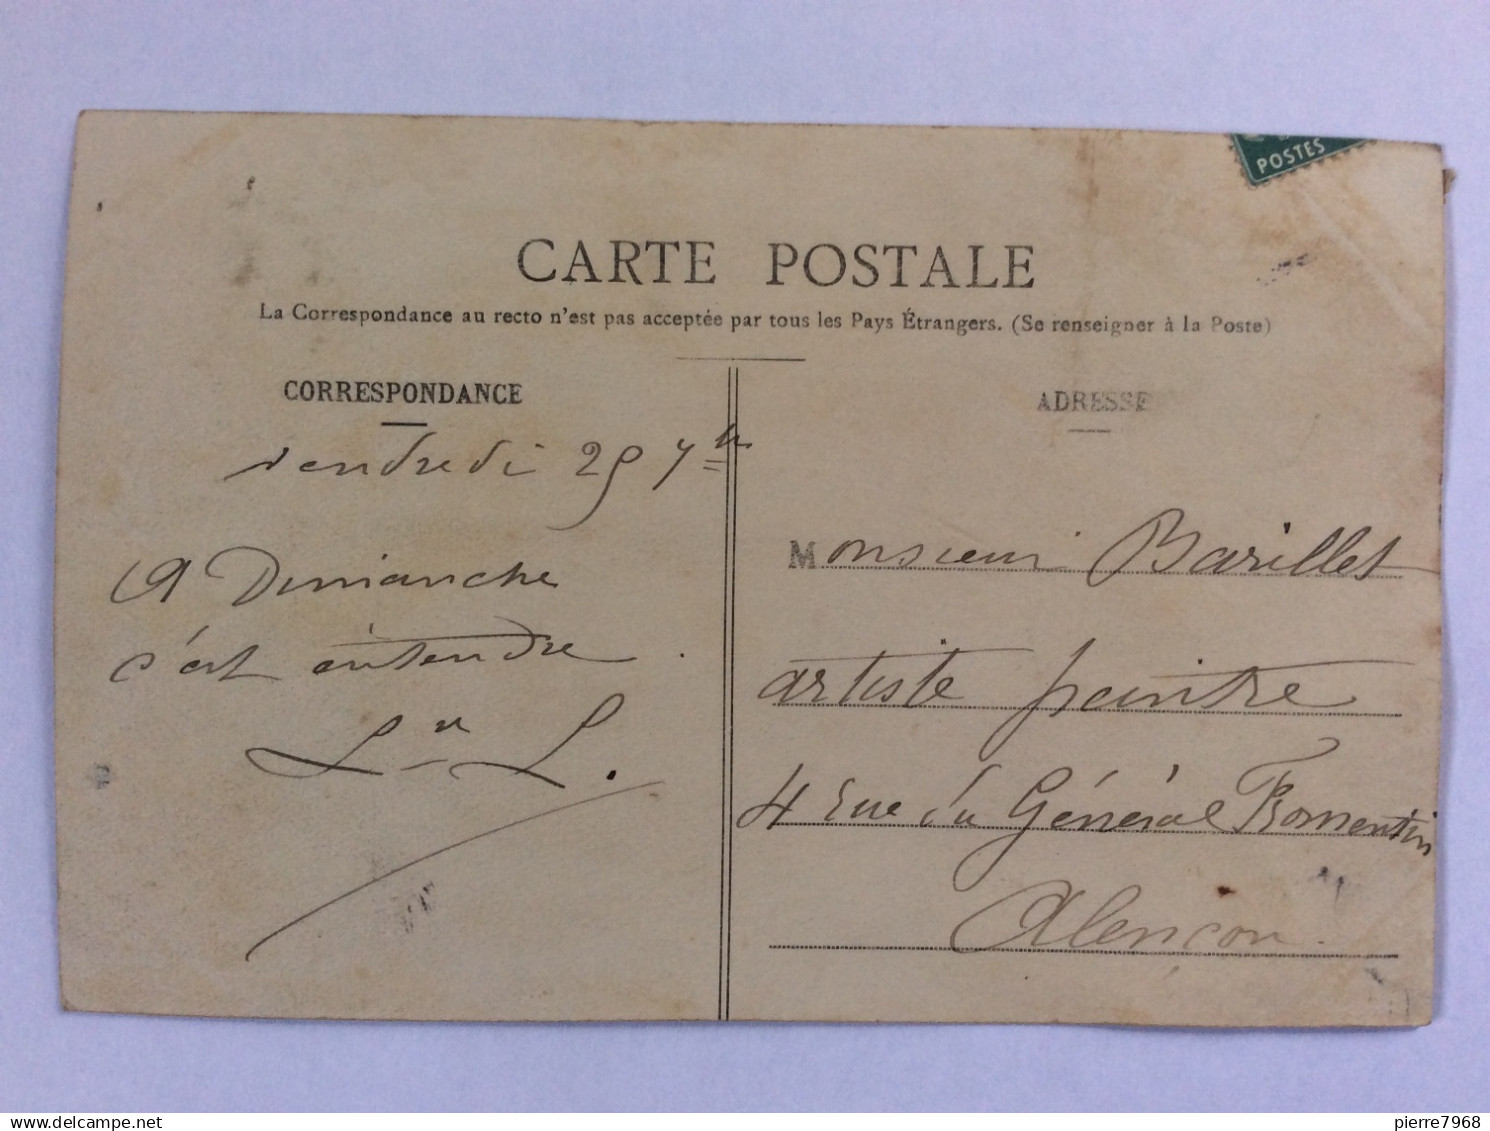 POSTES
CARTE POSTALE
La Correspondance au recto n'est pas acceptée par tous les Pays Étrangers. (Se renseigner à la Poste)
CORRESPONDANCE
vendredi 25 7bre
A Dimanche
c'est entendu.
L. L.
ADRESSE
Monsieur Barillet
artiste peintre
4 rue du Général Fromentin
Alençon.
pierre7968